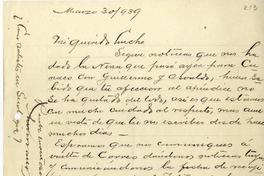 Marzo 30/939
213
Mi querido Lucho
Segun noticias que nos ha
dado la Nena que pasó ayer para Cu
raco con Guillermo y Osvaldo, hemos sa
bido que tu afeccion al apendice no
se ha quitado del todo, así es que estamos
con mucho cuidado al respecto, mas aun
de vista que tu no escribes desde hace
mucho dias —
Esperamos que nos comuniques á
vuelta de Correo dandonos noticias tuyas
y comunicandonos la fecha de